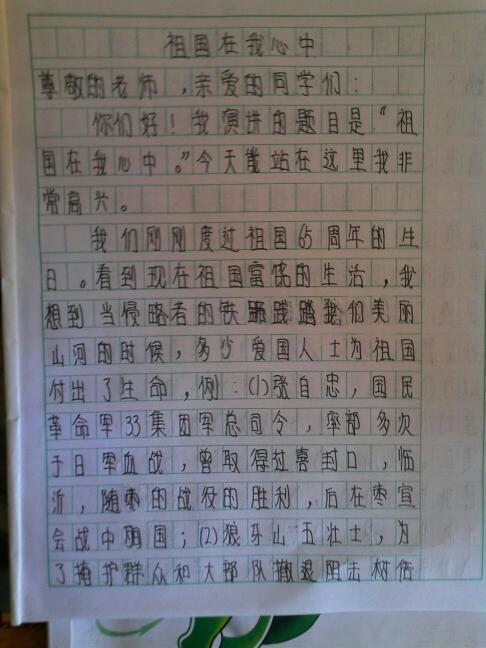 祖国在我心中
尊敬的老师,亲爱的同学们:
你们好!我演讲的题目是“祖
国在我心中。”今天能站在这里我非
常高兴。
我们刚刚度过祖国65周年的生
日。看到现在祖国富饶的生活,我
想到当侵略者的铁蹄践踏我们美丽
山河的时候,多少爱国人士为祖国
付出了生命,例:(1)张自忠,国民
革命军33集团军总司令,率部多次
于日军血战,曾取得过喜封口,临
沂,随枣的战役的胜利,后在枣宜
会战中殉国;(2)狼牙山五壮士,为
了掩护群众和大部队撤退阻击